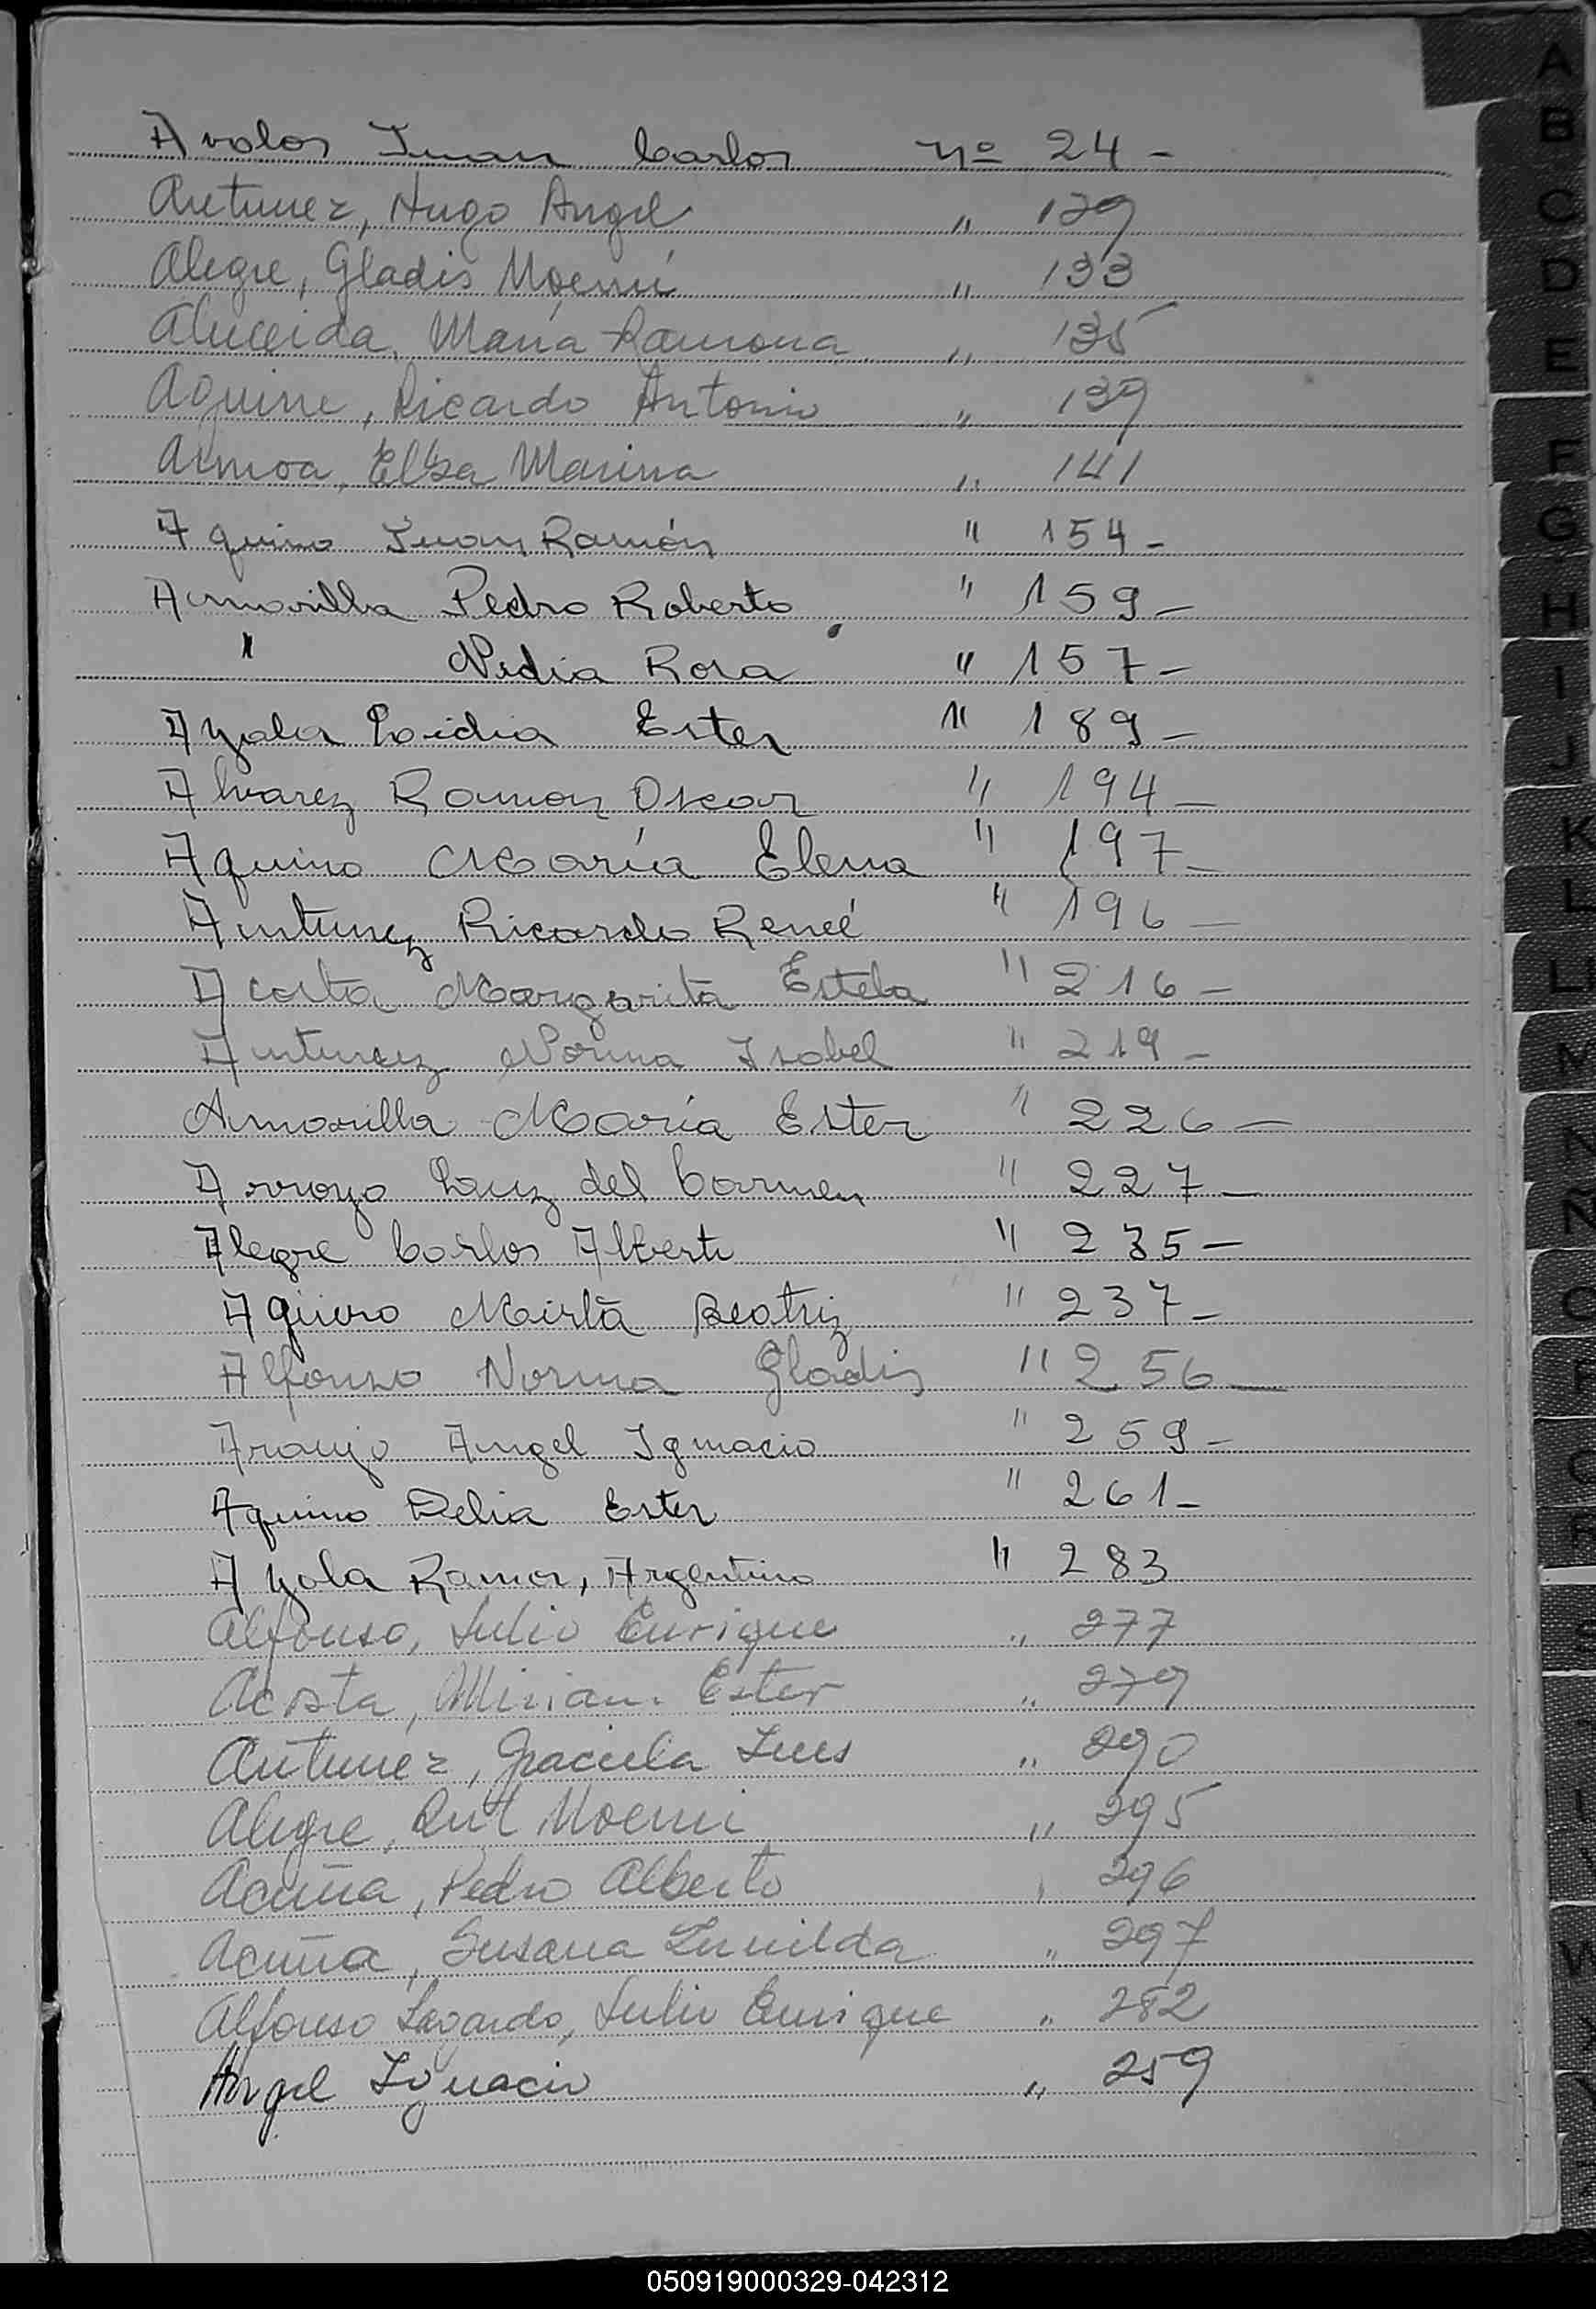 Avalos Juan Carlos nº 24-
Antunez, Hugo Angel " 129
Alegre, Gladis Noemí " 133
Almeida, María Ramona " 135
Aquine, Ricardo Antonio " 139
Armoa, Elsa Marina " 141
Aquino Juan Ramón " 154-
Amarilla Pedro Roberto " 159-
" Nedia Rosa " 157-
Ayala Lidia Ester " 189-
Alvarez Ramon Oscar " 194-
Aquino María Elena " 197-
Antunez Ricardo Reneé " 196-
Acosta Margarita Estela " 216-
Antunez Norma Isabel " 219-
Amarilla María Ester " 226-
Arroyo Luz del Carmen " 227-
Alegre Carlos Alberto " 235-
Agüero Mirta Beatriz " 237-
Alfonso Norma Gladis " 256-
Araujo Angel Ignacio " 259-
Aquino Delia Ester " 261-
Ayala Ramon, Argentino " 283
Alfonso, Julio Enrique " 277
Acosta, Miriam Ester " 279
Antunez, Graciela Ines " 290
Alegre, Rut Noemi " 295
Acuña, Pedro Alberto " 296
Acuña, Susana Zunilda " 297
Alfonso Julio Enrique " 282
Angel Ignacio " 259
A
B
C
D
E
F
G
H
I
J
K
L
M
N
Ñ
O
P
Q
R
S
050919000329-042312